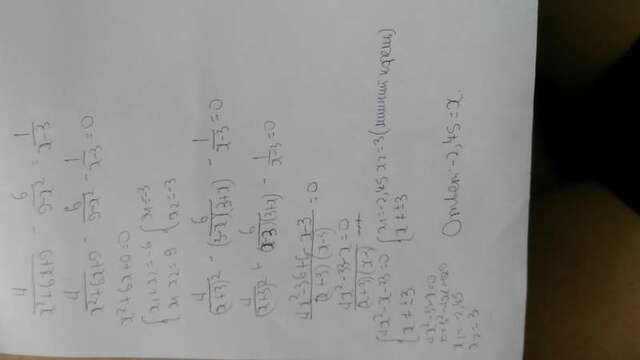 4/(x²+6x+9) - 6/(9-x²) = 1/(x-3)
4/(x²+6x+9) - 6/(9-x²) - 1/(x-3) = 0
x²+6x+9=0
{x₁+x₂=-6 {x₁=-3
{x₁ x₂=9 {x₂=-3
4/(x+3)² - 6/((3-x)(3+x)) - 1/(x-3) = 0
4/(x+3)² + 6/((x-3)(3+x)) - 1/(x-3) = 0
/((x+3)(x-3)) = 0
4x²-33-x=0
(x+3)(x-3)
{4x²-x-33=0 {x₁=-2,45 x₂=3 (лишний корень)
{x≠±3 {x≠±3
4x²-33-x=0
x₁=-2,45
x₂=3
Ответ: -2,45=x.